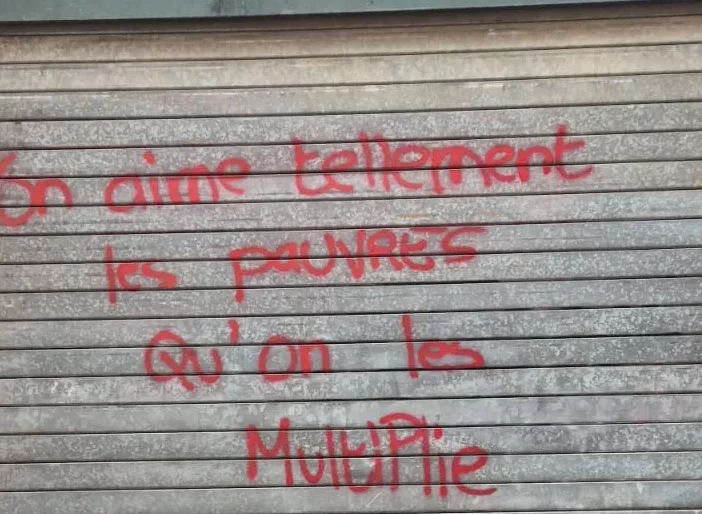 On aime tellement
les pauvres
Qu'on les
Multiplie